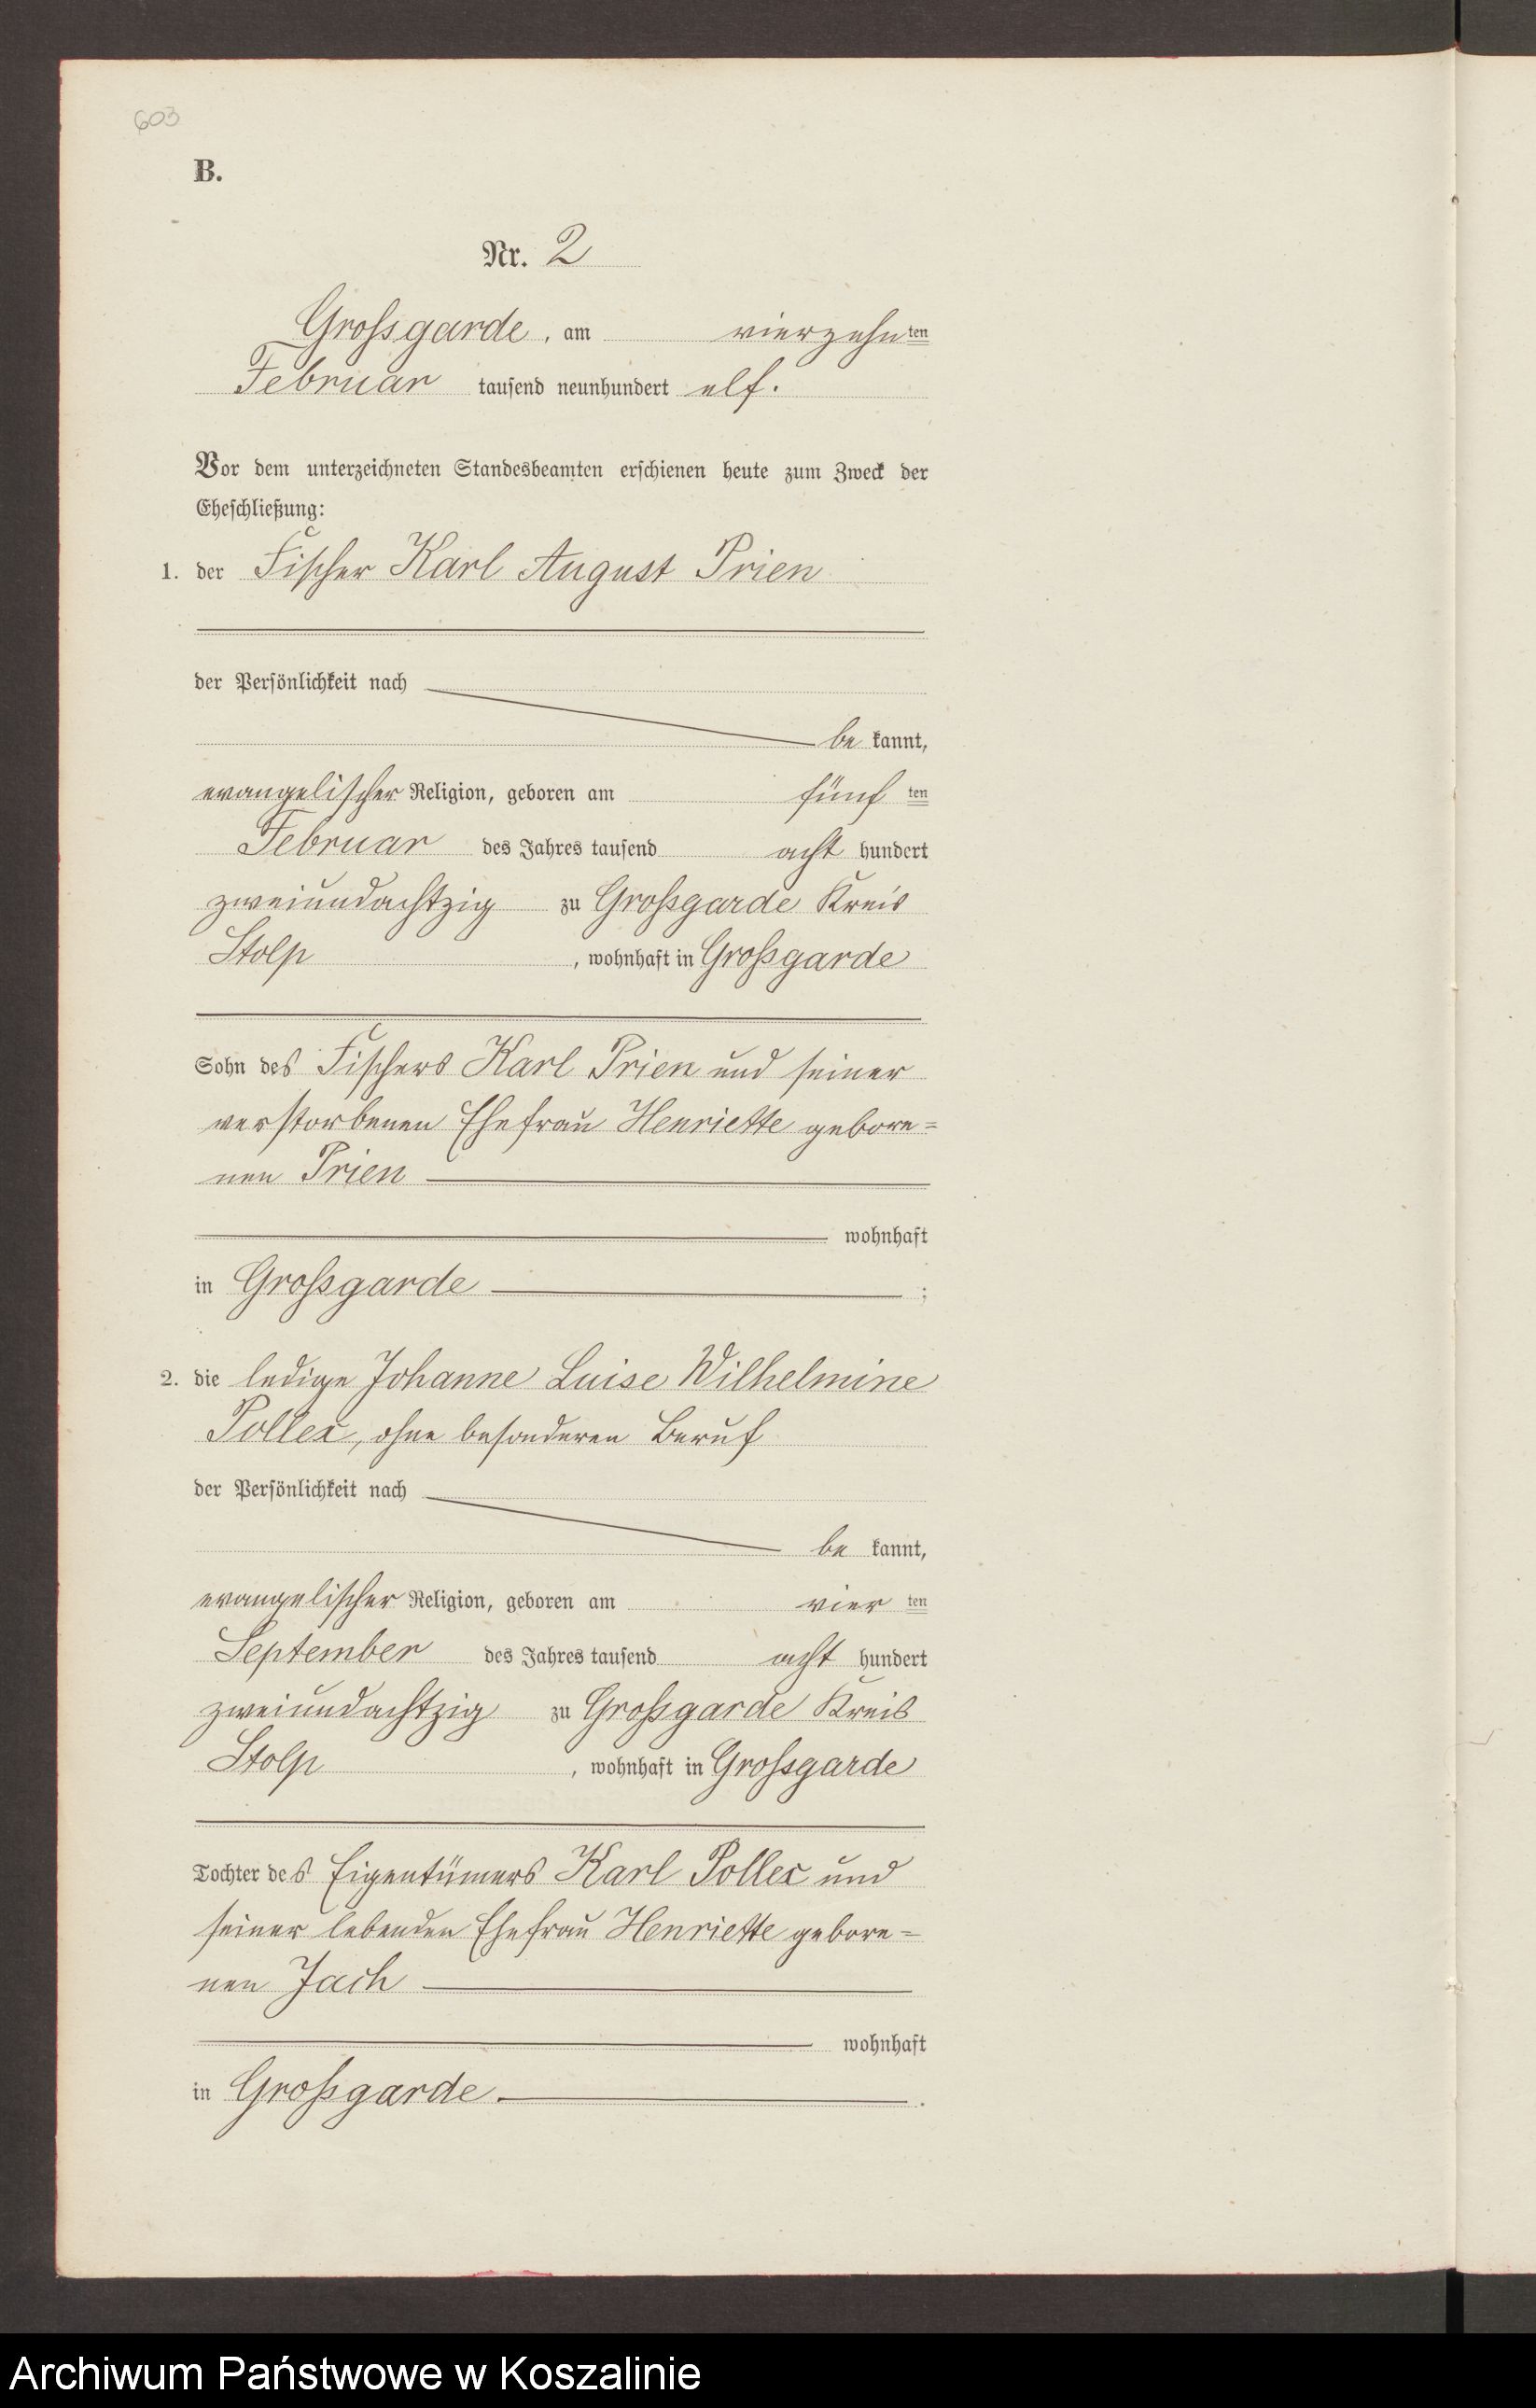 603
B.
Nr. 2
Grossgarde, am vierzehnten
Februar tausend neunhundert elf.
Vor dem unterzeichneten Standesbeamten erschienen heute zum Zweck der
Eheschließung:
1. der Fischer Karl August Prien
der Persönlichkeit nach
be kannt,
evangelischer Religion, geboren am fünf ten
Februar des Jahres tausend acht hundert
zweiundachtzig zu Großgarde Kreis
Stolp, wohnhaft in Großgarde
Sohn des Fischers Karl Prien und seiner
verstorbenen Ehefrau Henriette gebore=
nen Prien
wohnhaft
in Großgarde ;
2. die ledige Johanne Luise Wilhelmine
Pollex, ohne besonderen Beruf
der Persönlichkeit nach
be kannt,
evangelischer Religion, geboren am vier ten
September des Jahres tausend acht hundert
zweiundachtzig zu Großgarde Kreis
Stolp, wohnhaft in Grossgarde
Tochter des Eigentümers Karl Pollex und
seiner lebenden Ehefrau Henriette gebore=
nen Jach
wohnhaft
in Großgarde.
Archiwum Państwowe w Koszalinie